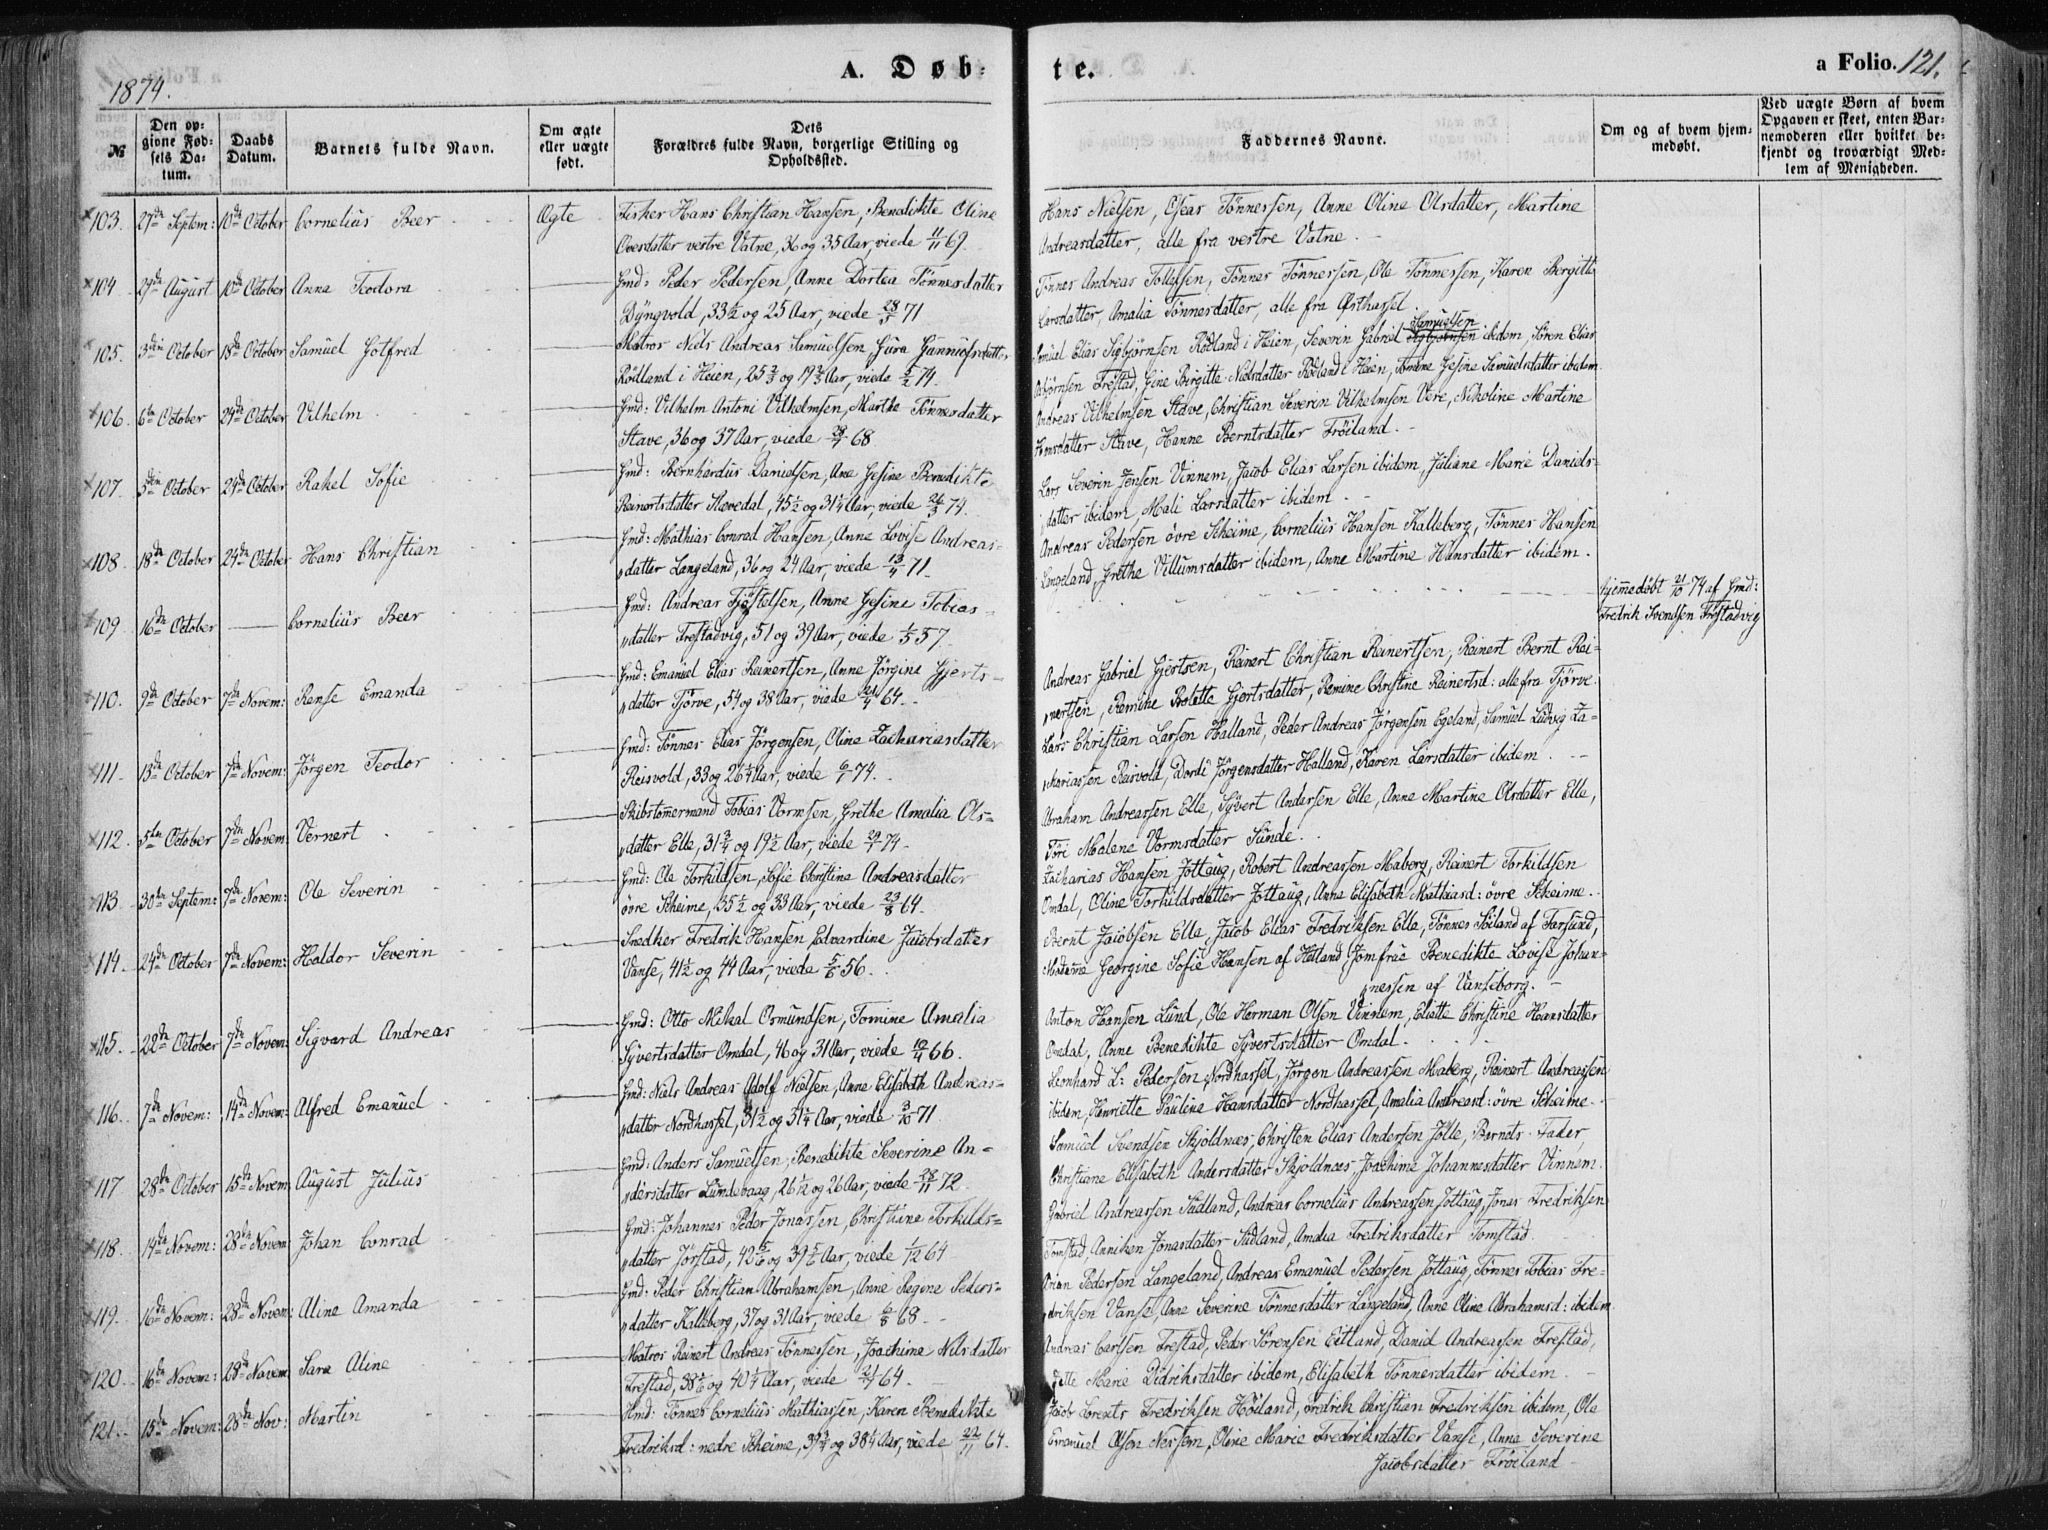 1874.
A. Døb-
te.
a Folio. 121.
№
Den op-
givne Fød-
sels Da-
tum.
Daabs
Datum.
Barnets fulde Navn.
Om ægte
eller uægte
født.
Dets
Forældres fulde Navn, borgerlige Stilling og
Opholdssted.
Faddernes Navne.
Om og af hvem hjem-
medøbt.
Ved uægte Børn af hvem
Opgaven er skeet, enten Bar-
nemoderen eller hvilket be-
kjendt og troværdigt Med-
lem af Menigheden.
103. 27de Septem: 10de October Cornelius Beer Ægte Fisker Hans Christian Hansen, Benedikte Oline
Ovesdatter vestre Vatne, 36 og 35 Aar, viede 11/11 69.
Hans Nielsen, Osear Tönnessen, Anne Oline Olsdatter, Martine
Andreasdatter, alle fra vestre Vatne.
104. 29de August 10de October Anna Teodora Gmd: Peder Pedersen, Anne Dortea Tönnesdatter
Dyngvold, 33 1/2 og 25 Aar, viede 71
Tönnes Andreas Tollefsen, Tönnes Tönnessen, Ole Tönnessen, Karen Bergitte
Larsdatter, Amalia Tönnesdatter, alle fra Østhassel.
105. 3die October 18de October Samuel Gotfred Matros Niels Andreas Samuelsen, Gura Gunnufsdatter
Rödland i Heien, 25 2/3 og 19 2/3 Aar, viede 74.
Samuelsen
Samuel Elias Sigbjørnsen Rödland i Heien, Severin Gabriel Sigbjørnsen ibidem Sören Elias
Asbjørnsen Frestad, Gine Birgitte Nielsdatter Rödland i Heien, Tomine Gesine Samuelsdatter ibidem
106. 6te October 24de October Vilhelm Gmd: Vilhelm Antoni Vilhelmsen, Marthe Tönnesdatter
Stave, 36 og 37 Aar, viede 68.
Andreas Vilhelmsen Stave, Christian Severin Vilhelmsen Vere, Nikoline Martine
Stave, Hanne Berntsdatter Fröiland.
107. October 24de October Rakel Sofie Gmd: Bernhardus Danielsen, Ane Gesine Benedikte
Reinertsdatter Slevedal, 45 1/2 og 31 1/4 Aar, viede 26/3 74.
Lars Severin Jensen Vinnem, Jacob Elias Larsen ibidem, Juliane Marie Daniels-
datter ibidem, Mali Larsdatter ibidem.
108. 18de October 24de October Hans Christian Gmd: Mathias Conrad Hansen, Anne Lovise Andreas-
datter Langeland, 36 og 24 Aar, viede 13/4 71.
Andreas Pedersen övre Skeime, Cornelius Hansen Kalleberg, Tönnes Hansen
Langeland, Grethe Villumsdatter ibidem, Anne Martine Hansdatter ibidem.
109. 16de October Cornelius Beer Gmd: Andreas Tjöstelsen, Anne Gesine Tobias-
datter Frestadvig, 51 og 39 Aar, viede 1/5 57.
hjemmedøbt 21/10 74 af Gmd:
Fredrik Svendsen Frestadvig
110. 9de October 7de Novem: Rense Emanda Gmd: Emanuel Elias Reinertsen, Anne Jörgine Gjerts-
datter Tjörve, 54 og 38 Aar, viede 64.
Andreas Gabriel Gjertsen, Reinert Christian Reinertsen, Reinert Bernt Rei-
nertsen, Remine Bolette Gjertsdatter, Remine Christine Reinertsd: alle fra Tjörve.
111. 13de October 7de Novem: Jörgen Teodor Gmd: Tönnes Elias Jörgensen, Oline Zachariasdatter
Reisvold, 33 og 26 1/4 Aar, viede 6/1 74.
Lars Christian Larsen Halland, Peder Andreas Jörgensen Egeland, Samuel Ludvig Za-
kariassen Reisvold, Dordi Jörgensdatter Halland, Karen Larsdatter ibidem.
112. 5te October 7de Novem: Vernert Skibstömermand Tobias Vormsen, Grethe Amalia Ols-
datter Elle, 31 3/4 og 19 1/2 Aar, viede 74.
Abraham Andreassen Elle, Syvert Andersen Elle, Anne Martine Olsdatter Elle,
Töri Malene Vormsdatter Sunde.
113. 30te Septem: 7de Novem: Ole Severin Gmd: Ole Torkildsen, Sofie Christine Andreasdatter
övre Skeime, 35 1/2 og 33 Aar, viede 23/8 64.
Zacharias Hansen Jöttaug, Robert Andreassen Maberg, Reinert Torkildsen
Omdal, Oline Torkildsdatter Jöttaug, Anne Elisabeth Mathiasd: övre Skeime.
114. 24de October 7de Novem: Haldor Severin Snedker Fredrik Hansen, Edvardine Jacobsdatter
Vanse, 41 1/2 og 44 Aar, viede 56.
Bernt Jacobsen Elle, Jacob Elias Fredriksen Elle, Tönnes af Farsund,
Madame Georgine Sofie Hansen af Hetland, Jomfrue Benedikte Lovise Johan-
nessen af Vanseborg.
115. 22de October 7de Novem: Sigvard Andreas Gmd: Otto Mikal Osmundsen, Tomine Amalia
Syvertsdatter Omdal, 46 og 31 Aar, viede 10/4 66.
Anton Hansen Lund, Ole Herman Olsen Vinnem, Eliette Christine Hansdatter
Omdal, Anne Benedikte Syvertsdatter Omdal.
116. 7de Novem: 14de Novem: Alfred Emanuel Gmd: Niels Andreas Adolf Nielsen, Anne Elisabeth Andreas-
datter Nordhassel, 31 1/2 og 31 1/4 Aar, viede 3/10 71.
Leonhard L: Pedersen Nordhassel, Jörgen Andreassen Maberg, Reinert Andreassen
ibidem, Henriette Pauline Hansdatter Nordhassel, Amalia Andreasd: övre Skeime.
117. 28de October 15de Novem: August Julius Gmd: Anders Samuelsen, Benedikte Severine An-
dersdatter Lundevaag, 26 1/2 og 26 Aar, viede 28/11 72.
Samuel Svendsen Skjoldnæs, Christen Elias Andersen Jölle, Barnets Fader,
Christiane Elisabeth Andersdatter Skjoldnæs, Joachime Johannesdatter Vinnem.
118. 14de Novem: 28de Novem: Johan Conrad Gmd: Johannes Peder Jonassen, Christine Torkilds-
datter Jörstad, 42 5/6 og 39 5/6 Aar, viede 1/12 64
Gabriel Andreassen Sudland, Andreas Cornelius Andreassen Jöttaug, Jonas Fredriksen
Tomstad, Anniken Jonasdatter Sudland, Amalia Fredriksdatter Tomstad.
119. 16de Novem: 28de Novem: Aline Amanda Gmd: Peder Christian Abrahamsen, Anne Regine Peders-
datter Kalleberg, 37 og 31 Aar, viede 68.
Arian Pedersen Langeland, Andreas Emanuel Pedersen Jöttaug, Tönnes Tobias Fre-
driksen Vanse, Anne Severine Tönnesdatter Langeland, Anne Oline Abrahamsd: ibidem
120. 16de Novem: 28de Novem: Sara Aline Matros Reinert Andreas Tönnessen, Joachime Nilsdatter
Frestad, 38 1/6 og 40 1/4 Aar, viede 64.
Andreas Carlsen Frestad, Peder Sörensen Eitland, Daniel Andreassen Frestad,
Marie Didriksdatter ibidem, Elisabeth Tönnesdatter ibidem.
121. 15de Novem: 28de Nov: Martin Gmd: Tönnes Cornelius Mathiassen, Karen Benedikte
Fredriksd: nedre Skeime, 39 3/4 og 38 1/4 Aar, viede 22/11 64.
Jacob Lorents Fredriksen Höiland, Fredrik Christian Fredriksen ibidem, Ole
Emanuel Olsen Nessem, Oline Marie Fredriksdatter Vanse, Anne Severine
Jacobsdatter Fröiland